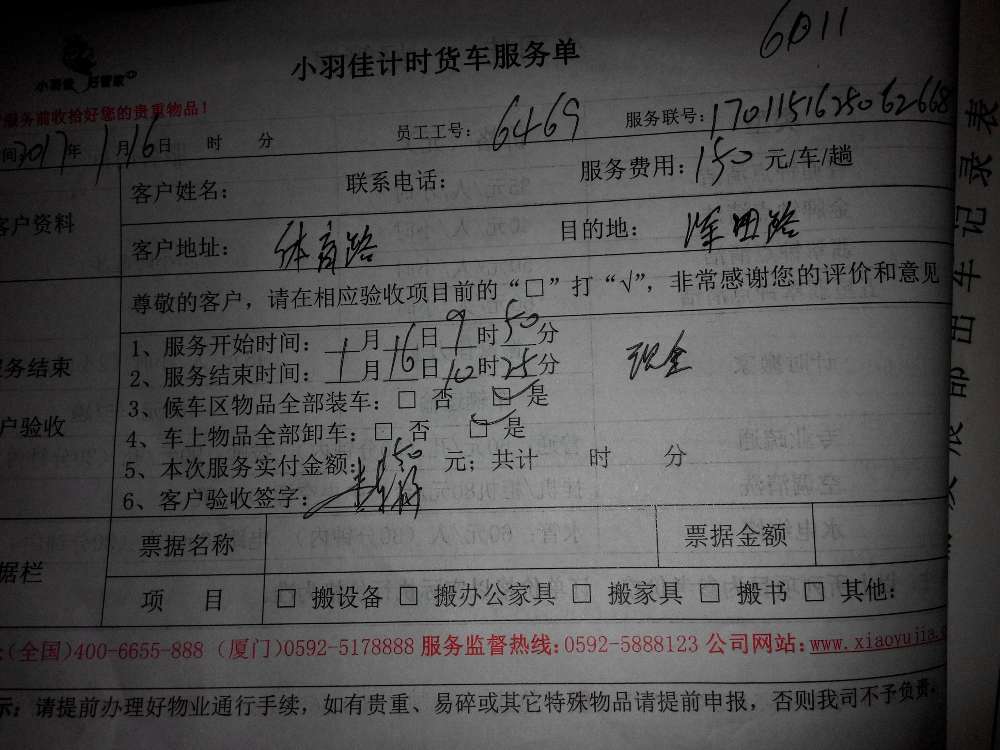 6011
小羽佳计时货车服务单
小羽佳
服务前收拾好您的贵重物品！
间2017年1月16日 时 分 员工工号：6469 服务联号：170115162506 2668
客户资料 客户姓名： 联系电话： 服务费用：150 元/车/趟
客户地址：体育路 目的地：莲田路
尊敬的客户，请在相应验收项目前的“□”打“√”，非常感谢您的评价和意见
服务结束
户验收
1、服务开始时间：1月16日9时50分
2、服务结束时间：1月16日10时25分 现金
3、候车区物品全部装车：□ 否 ☑ 是
4、车上物品全部卸车：□ 否 ☑ 是
5、本次服务实付金额：150 元；共计 时 分
6、客户验收签字：
据栏 票据名称 票据金额
项 目 □ 搬设备 □ 搬办公家具 □ 搬家具 □ 搬书 □ 其他：
(全国)400-6655-888 (厦门)0592-5178888 服务监督热线：0592-5888123 公司网站：www.xiaoyujia
示：请提前办理好物业通行手续，如有贵重、易碎或其它特殊物品请提前申报，否则我司不予负责。
部出车记录表